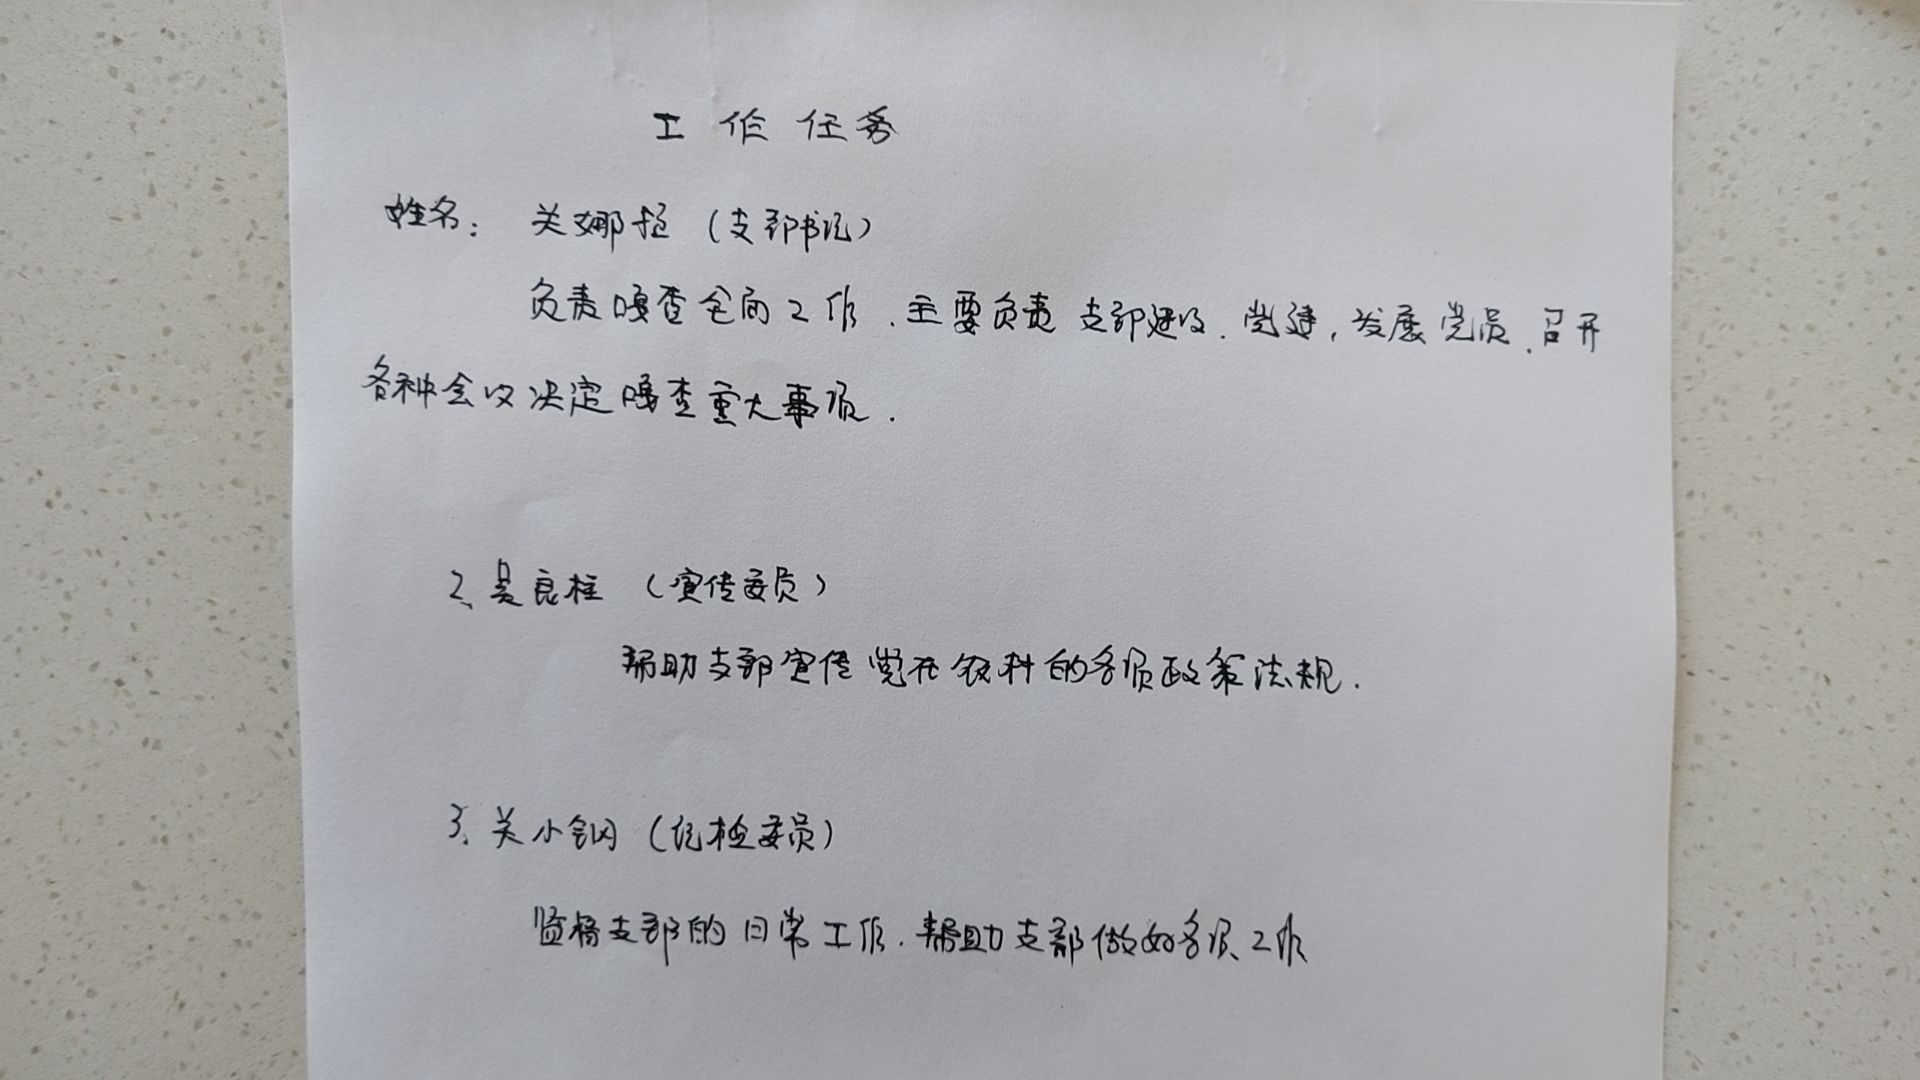 工作任务
姓名: 关娜拉 (支部书记)
负责嘎查全面工作.主要负责支部建设.党建,发展党员.召开
各种会议决定嘎查重大事项.
2、吴良柱 (宣传委员)
帮助支部宣传党在农村的各项政策法规.
3、关小钢 (纪检委员)
监督支部的日常工作.帮助支部做好各项工作